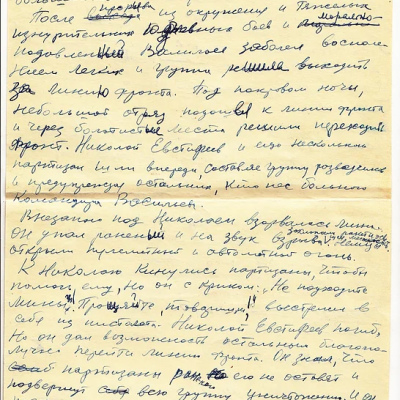 прорыва
После из окружения и тяжелых
морально
изнурительных боев и
подавленный Васильев заболел воспале-
нием легких и группа решила выходить
за линию фронта. Под покровом ночи,
небольшой отряд подошел к линии фронта
и через болотистые места решили переходить
фронт. Николай Евстифеев и еще несколько
партизан шли впереди составляя группу разведчиков
и предупреждая остальных, кто нес больного
командира Васильева.
Внезапно под Николаем взорвалась мина.
он упал раненый и на звук взрыва немцы
открыли пулеметный и автоматный огонь.
К Николаю кинулись партизаны, чтобы
помочь ему, но он с криком: "Не подходите
мины"! Прощайте, товарищи!" выстрелил в
себя из пистолета. Николай Евстифеев погиб,
Но он дал возможность остальным благопо-
лучно перейти линию фронта. Он знал, что
партизаны его не оставят и
подвергнут всю группу уничтожению. И он